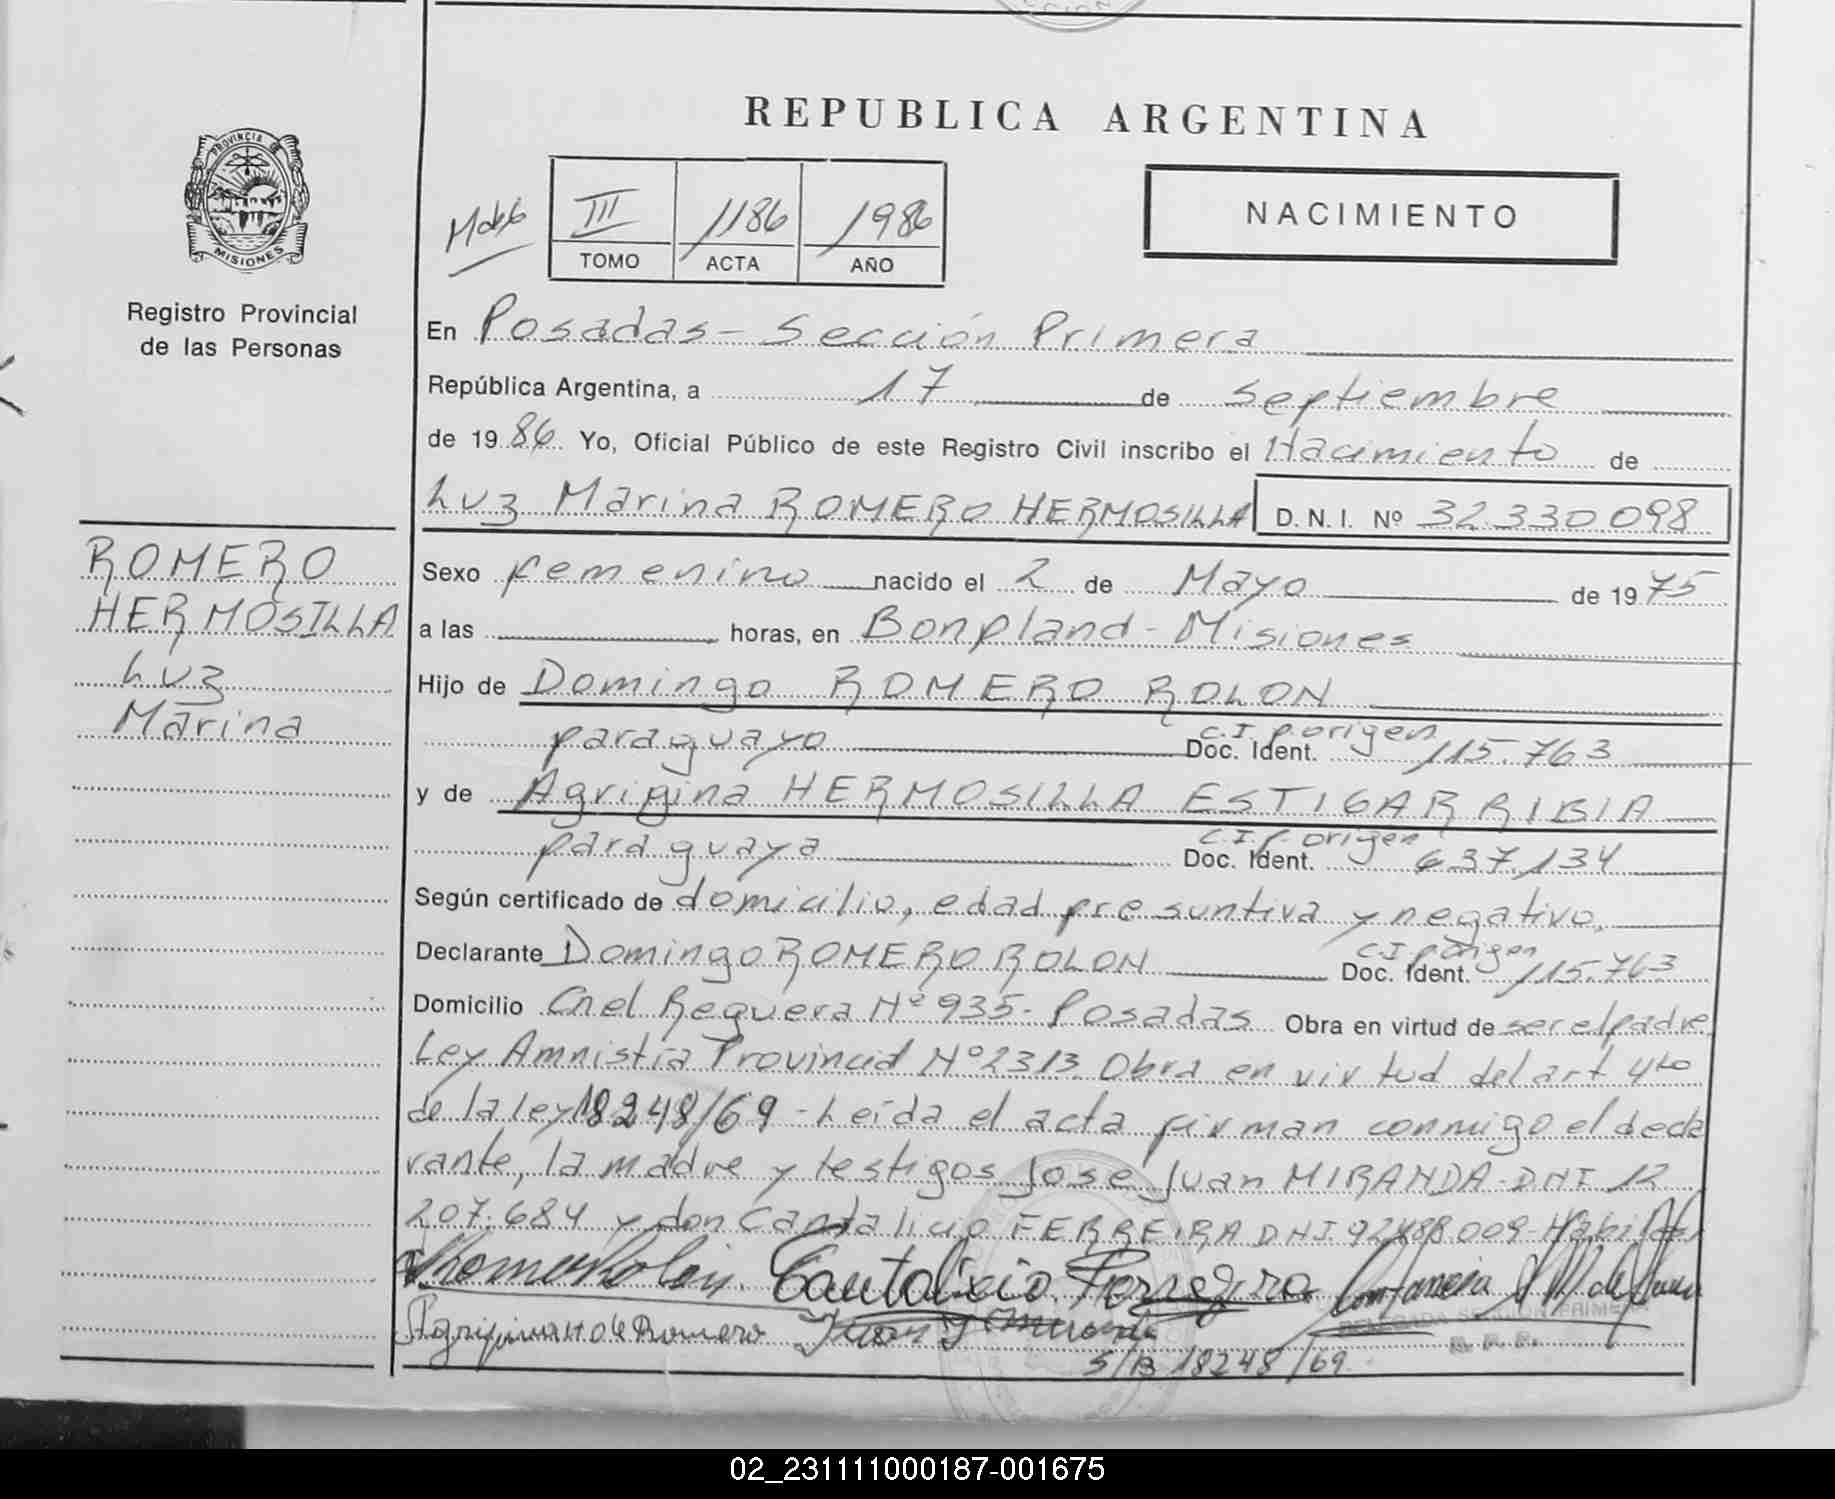 REPUBLICA ARGENTINA
PROVINCIA DE
MISIONES
Registro Provincial
de las Personas
III 1186 1986
TOMO ACTA AÑO
NACIMIENTO
En Posadas - Sección Primera
República Argentina, a 17 de septiembre
de 1986 Yo, Oficial Público de este Registro Civil inscribo el Nacimiento de
Luz Marina ROMERO HERMOSILLA D.N.I. Nº 32.330.098
ROMERO
HERMOSILLA
Luz
Marina
Sexo femenino nacido el 2 de Mayo de 1975
a las horas, en Bonpland - Misiones
Hijo de Domingo ROMERO ROLON
paraguayo Doc. Ident. C.I. p. origen 115.763
y de Agripina HERMOSILLA ESTIGARRIBIA
paraguaya Doc. Ident. C.I. p. origen 637.134
Según certificado de domicilio, edad presuntiva y negativo,
Declarante Domingo ROMERO ROLON Doc. Ident. C.I p. origen 115.763
Domicilio Cnel Reguera Nº 935 - Posadas Obra en virtud de ser el padre
Ley Amnistía Provincial Nº 2313. Obra en virtud del art 4to
de la ley 18248/69 - Leída el acta firman conmigo el decla
rante, la madre y testigos Jose Juan MIRANDA - DNI 12
207.684 y don Cantalicio FERREIRA DNI 92488009 - Habilita
Romero Rolon. Cantalicio Ferreira
Agripina H de Romero Juan J Miranda
DELEGADA SECCION PRIMERA
R. P. P.
S/B 18248/69.
02_231111000187-001675